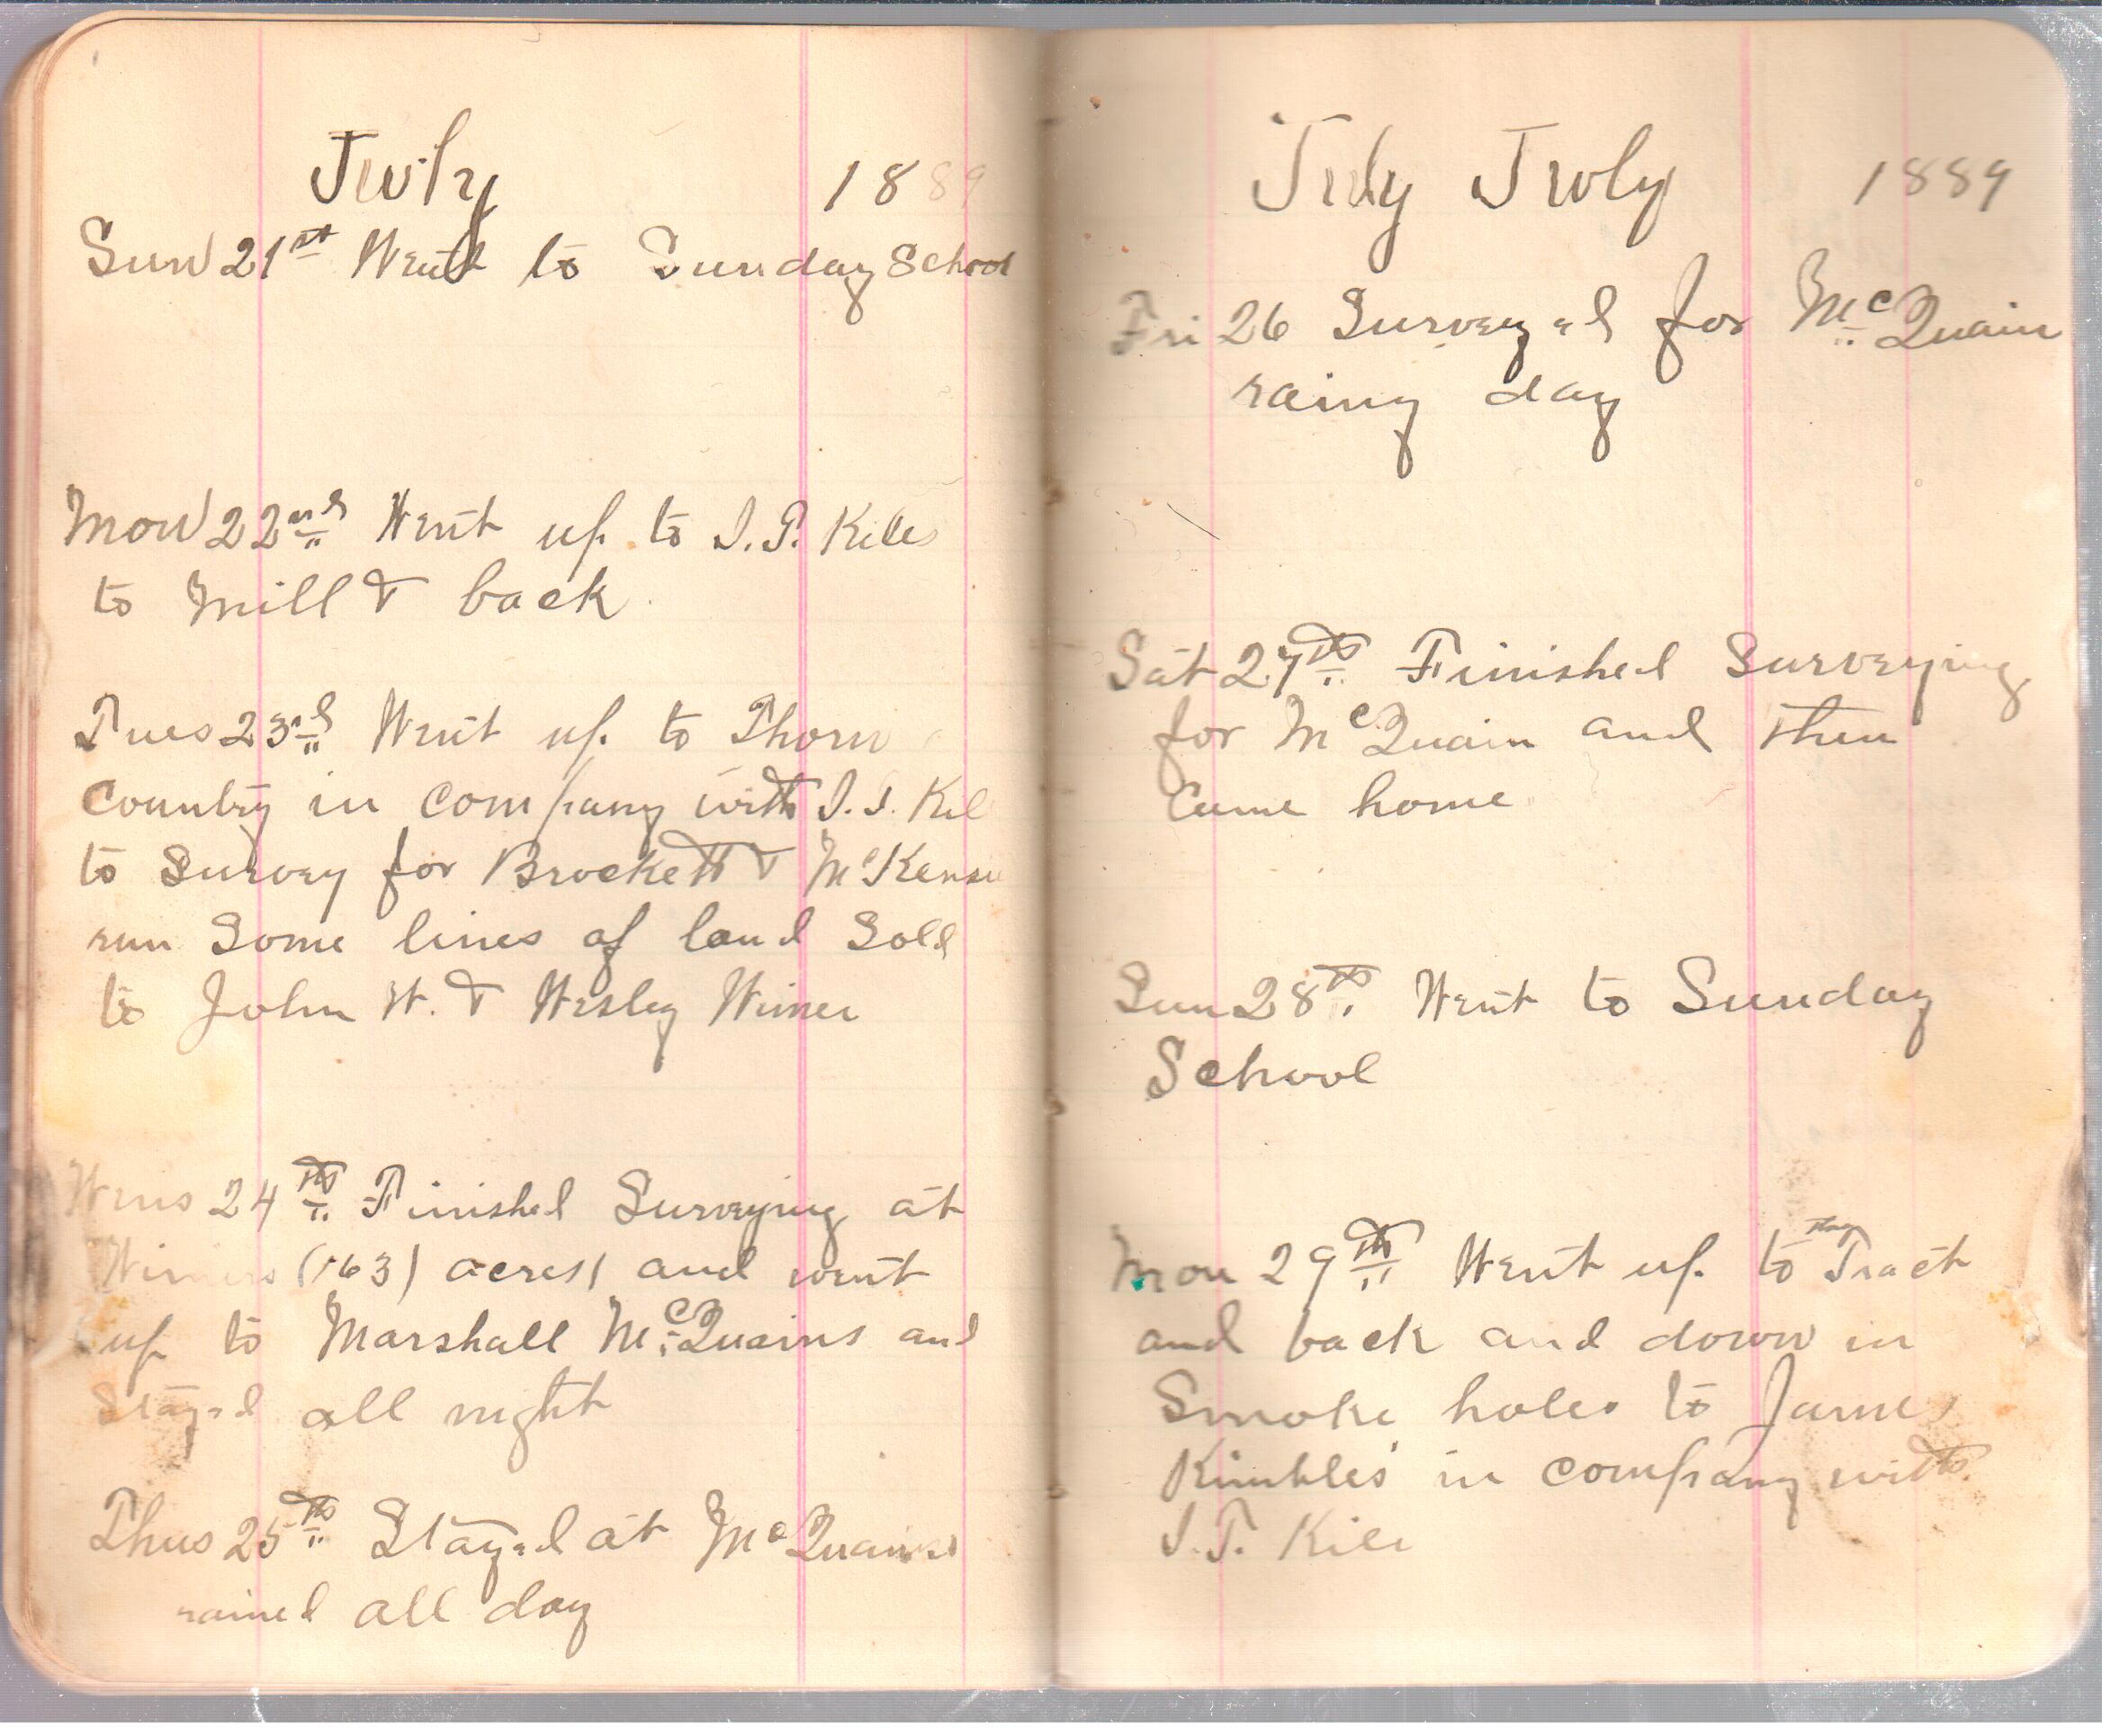 July 1889
Sun 21st Went to Sunday School
Mon 22nd Went up to I.T. Kiles
to Mill & back
Tues 23rd Went up to Thorn
Country in company with I.T. Kil
to Survey for Brockett & McKensie
run Some lines of land Sold
to John W. & Wesley Wimer
Wens 24th Finished Surveying at
Wimers (163) acres and went
up to Marshall McQuains and
Stayed all night
Thus 25th Stayed at McQuains
rained all day
July July 1889
Fri 26 Surveyed for McQuain
rainy day
Sat 27th Finished Surveying
for McQuain and then
Came home
Sun 28th Went to Sunday
School
Mon 29th Went up to Tract
and back and down in
Smoke holes to James
Kimbles in company with
I.T. Kile